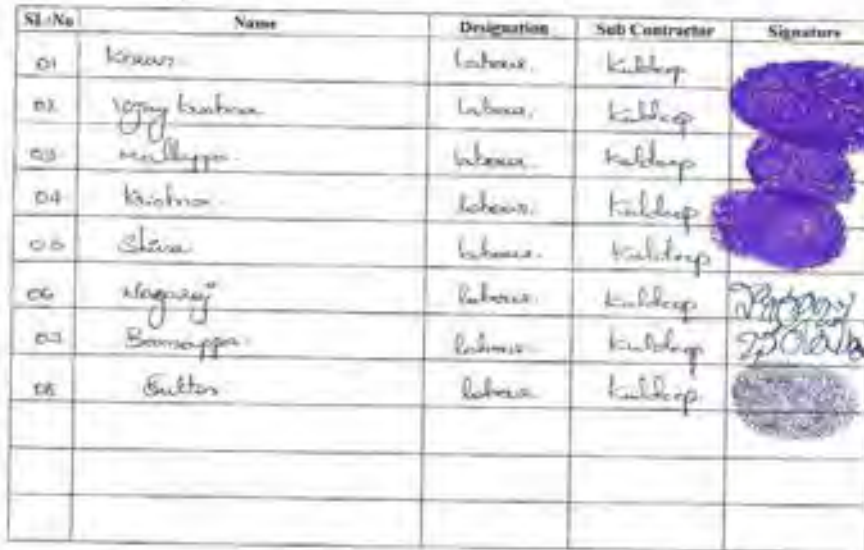 Sl.No Name Designation Sub Contractor Signature
01 Kiran labour. Kuldeep
02 Vijay Krishna labour. Kuldeep
03 Mallappa. labour. Kuldeep
04 Krishna labour. Kuldeep
05 Shiva labour. Kuldeep
06 Nagaraj labour. Kuldeep
07 labour. Kuldeep
08 labour Kuldeep